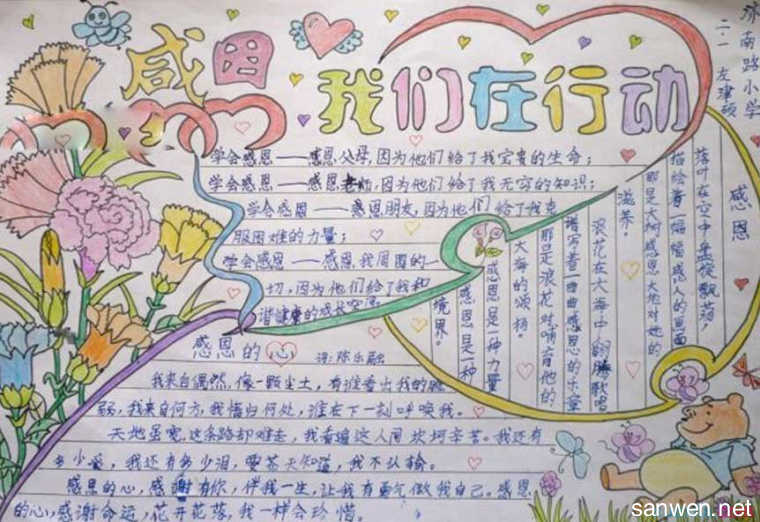 感恩
我们在行动
济南路小学
二·一 左津硕
学会感恩——感恩父母,因为他们给了我宝贵的生命;
学会感恩——感恩老师,因为他们给了我无穷的知识;
学会感恩——感恩朋友,因为他们给了我克
服困难的力量;
学会感恩——感恩我周围的一
切,因为他们给了我和
谐健康的成长空间。
感恩
落叶在空中盘旋飘荡,
描绘着一幅幅感人的画面
那是大树感恩大地对她的
滋养。
浪花在大海中翻腾歌唱
谱写着一曲曲感恩的乐章
那是浪花对哺育他的
大海的颂扬。
感恩是一种力量
感恩是一种
境界。
感恩的心
诗:陈乐融
我来自偶然,像一颗尘土,有谁看出我的脆
弱,我来自何方,我情归何处,谁在下一刻呼唤我。
天地虽宽,这条路却难走,我看遍这人间坎坷辛苦。我还有
多少爱,我还有多少泪,要苍天知道,我不认输。
感恩的心,感谢有你,伴我一生,让我有勇气做我自己。感恩
的心,感谢命运,花开花落,我一样会珍惜。
sanwen.net